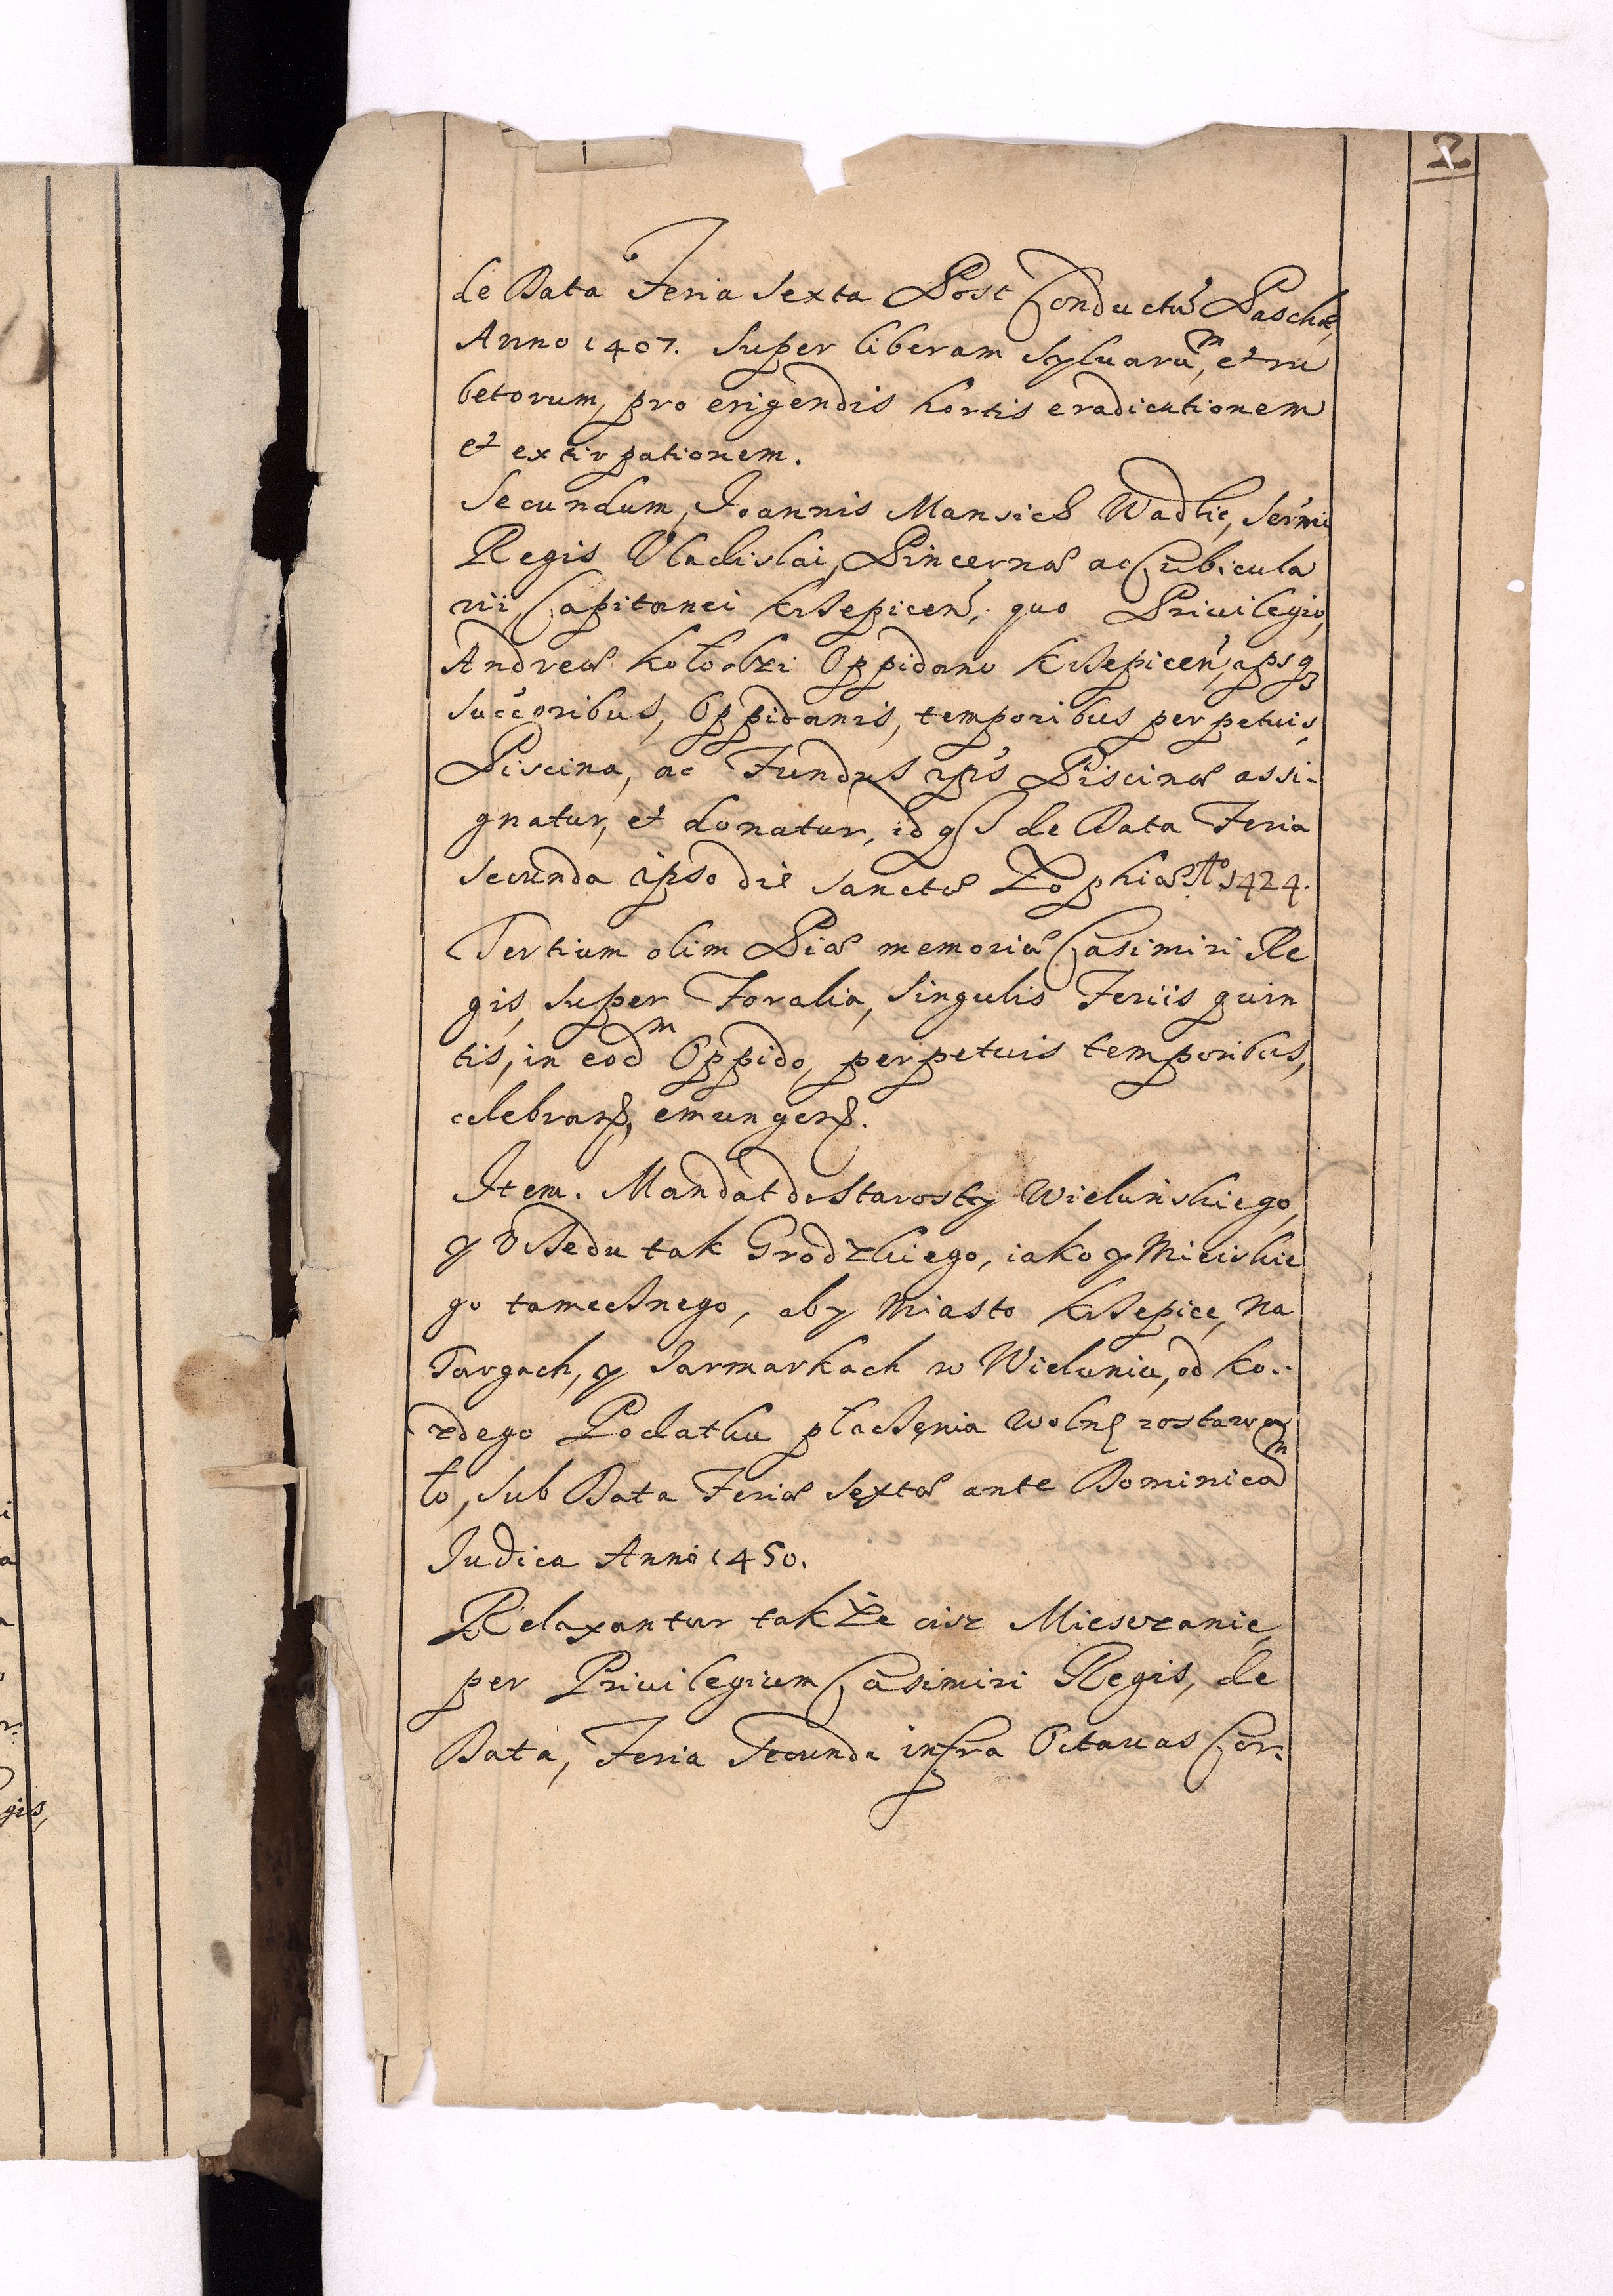 2
de Data Feria Sexta Post Conductũ Paschæ,
Anno 1407. Super liberam Sylvarũm, et ru
betorum, pro erigendis hortis eradicationem
et extirpationem.
Secundum, Joannis Mansich Wadlic, Sermi
Regis Vladislai, Pincernæ ac Cubicula
rii, Capitanei Krzepicen. quo Privilegio,
Andreæ Kołodzi Oppidano Krzepicen, ipsq3
Succoribus, Oppidanis, temporibus perpetuis,
Piscina, ac Fundus ipś Piscinæ assi-
gnatur, et donatur, id de Data Feria
Secunda ipso die Sanctæ Zophiæ Ao 1424.
Tertium olim Piæ memoriæ Casimiri Re
gis, Super Foralia, Singulis Feriis quin
tis, in eodm Oppido, perpetuis temporibus,
celebran, emungen.
Item. Mandat do Starosty Wieluńskiego,
y Vrzedu tak Grodzkiego, iako y Mieiskie
go tamecznego, aby Miasto Krzepice, na
Targach, y Jarmarkach w Wieluniu, od ko-
zdego Podatku płaczęnia wolne zostawa
ło, Sub Data Feriæ Sextæ ante Dominicam
Judica Anno 1450.
Relaxantur także cisz Miesczanie,
per Privilegium Casimiri Regis, de
Data, Feria Secunda infra Octavas Cor-
gis,